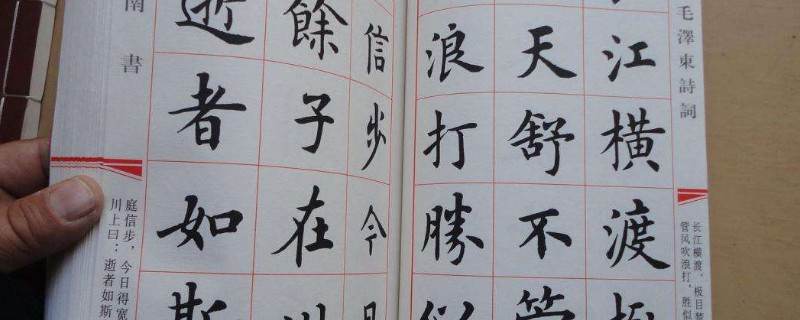 毛澤東詩詞
江横渡
天舒不管
浪打勝似
长江横渡,极目楚
管风吹浪打,胜似
信步今日
餘子在川
逝者如斯
南書
庭信步,今日得宽
川上曰:逝者如斯